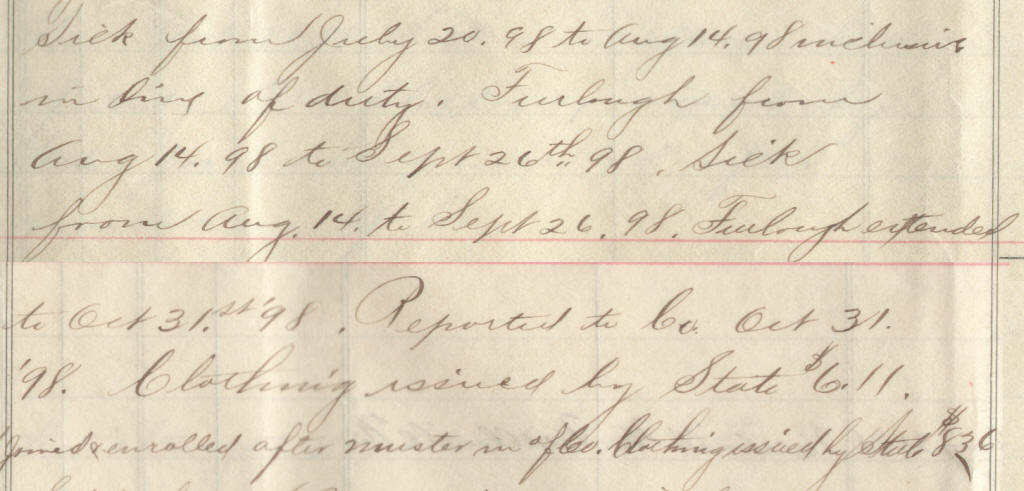 Sick from July 20. 98 to Aug 14. 98 inclusive
in line of duty. Furlough from
Aug 14. 98 to Sept 26th 98. Sick
from Aug. 14. to Sept 26. 98. Furlough extended
to Oct 31.st '98. Reported to Co. Oct 31.
'98. Clothing issued by State $6.11.
Joined & enrolled after muster in of Co. Clothing issued by State $8